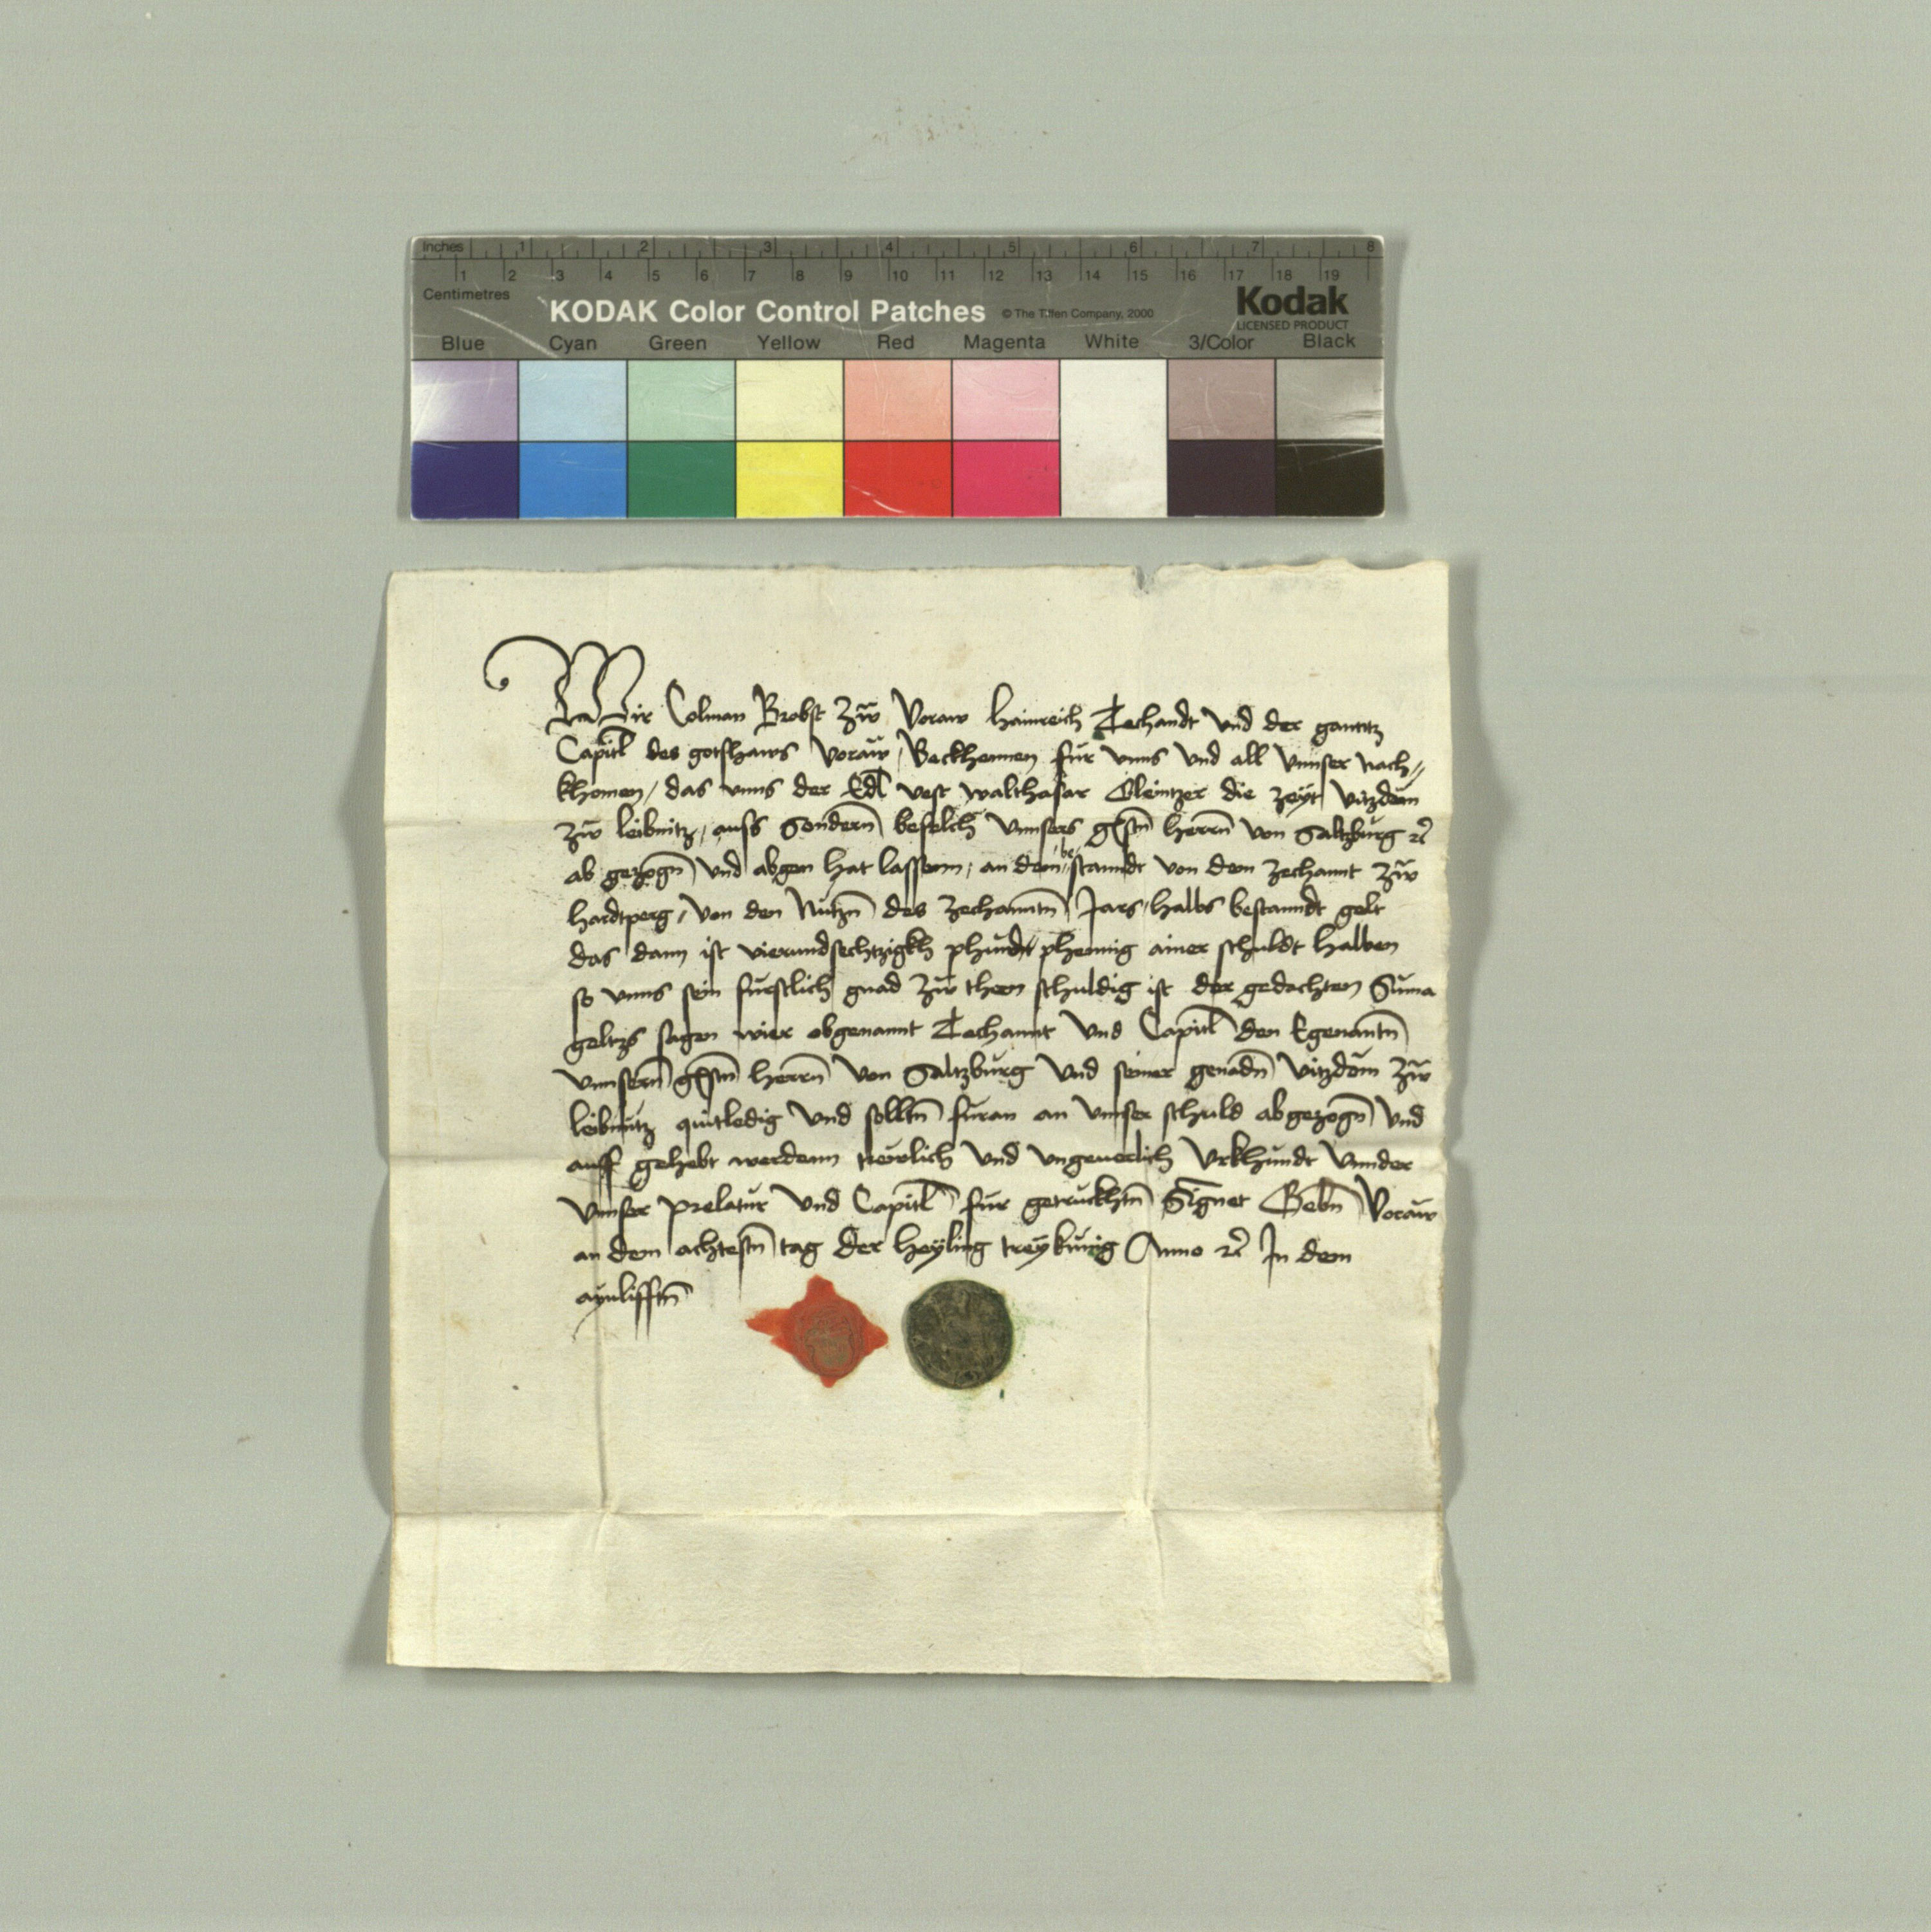 Inches 1 2 3 4 5 6 7 8
1 2 3 4 5 6 7 8 9 10 11 12 13 14 15 16 17 18 19
Centimetres
KODAK Color Control Patches © The Tiffen Company, 2000 Kodak
LICENSED PRODUCT
Blue Cyan Green Yellow Red Magenta White 3/Color Black
Wir Colman Brobst zw̄ Voraw hainreich Techandt Vnd der ganntz
Capitl des gotshaws Voraw, Beckhennen für vnns Vnd all Vnnser nach⸗
khomen, das vnns der Edl vest walthasar Gleintzer die zeyt vitzdom
zw leibnitz, auss Sondern̄ befelch Vnnsers gstn̄ herrn̄ von Saltzburg ꝛc̄
ab gezogn̄ Vnd abgen hat lassenn, an dem be standt von dem zechannt zw̄
hardtperg, Von den Nutzn̄ des zechanntn̄ Jars, halbs bestanndt gelt
das dann ist vierundsechtzigkh phundt phennig ainer schuldt halben
so vnns sein furstlich gnad zw then schuldig ist der gedachten Suma
geltzs sagen wier obgenannt Techannt Vnd Capitl den Egenantn̄
Vnnsern̄ gstn̄ herrn̄ Von Saltzburg Vnd seiner genadn̄ Vitzdom zw̄
leibnitz quitledig Vnd solltn̄ furan an Vnnser schuld abgezogn̄ Vnd
auff gehebt werdenn trewlich Vnd Vngeuerlich Vrkhundt Vnnder
Vnnser prelatur Vnd Capitl fur getruckhtn̄ Signet Gebn̄ Voraw
an dem achtestn̄ tag der heyling treykunig Anno ꝛc̄ In dem
aynlifftn̄